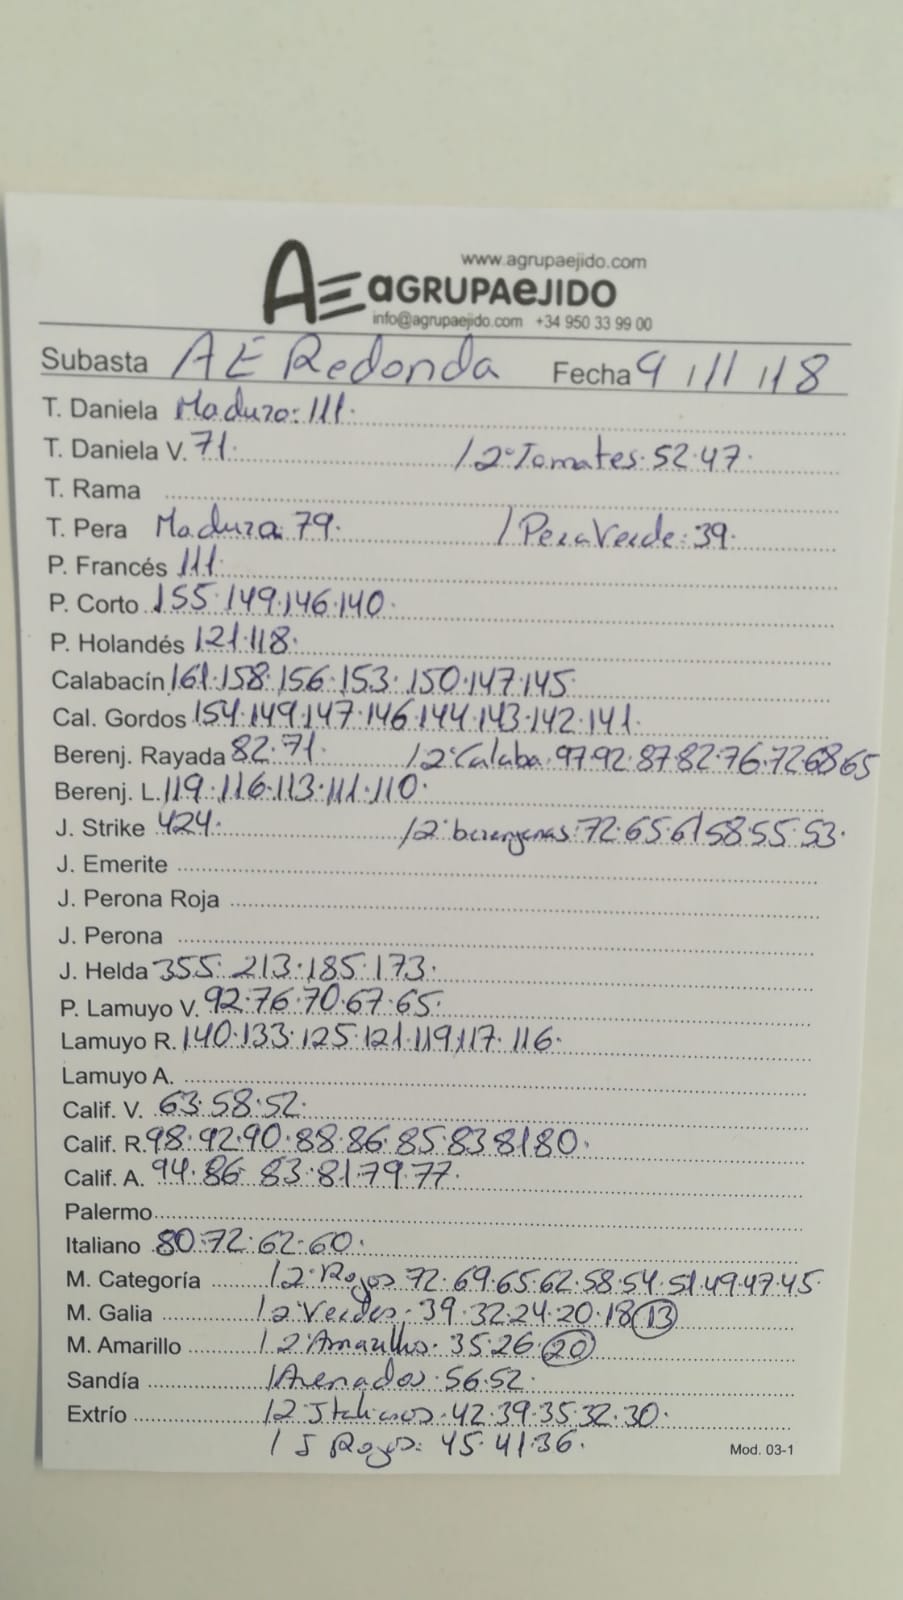 www.agrupaejido.com
AE aGRUPAeJIDO
info@agrupaejido.com +34 950 33 99 00
Subasta AE Redonda Fecha 9/11/18
T. Daniela Maduro: 111.
T. Daniela V. 71. / 2ª Tomates. 52.47.
T. Rama
T. Pera Madura 79. / Pera Verde: 39.
P. Francés 111.
P. Corto 155.149.146.140.
P. Holandés 121.118.
Calabacín 161.158.156.153.150.147.145.
Cal. Gordos 154.149.147.146.144.143.142.141.
Berenj. Rayada 82.71. / 2ª Calaba. 97.92.87.82.76.72.68.65
Berenj. L. 119.116.113.111.110.
J. Strike 424. / 2ª berenjenas: 72.65.61.58.55.53.
J. Emerite
J. Perona Roja
J. Perona
J. Helda 355.213.185.173.
P. Lamuyo V. 92.76.70.67.65.
Lamuyo R. 140.133.125.121.119.117.116.
Lamuyo A.
Calif. V. 63.58.52.
Calif. R. 98.92.90.88.86.85.83.81.80.
Calif. A. 94.86.83.81.79.77.
Palermo
Italiano 80.72.62.60.
M. Categoría / 2ª Rojos 72.69.65.62.58.54.51.49.47.45.
M. Galia / 2ª Verdes. 39.32.24.20.18 13
M. Amarillo / 2ª Amarillos. 35.26. 20
Sandía / Arenados. 56.52.
Extrío / 2 Italianos. 42.39.35.32.30.
/ J Rojos: 45.41.36.
Mod. 03-1